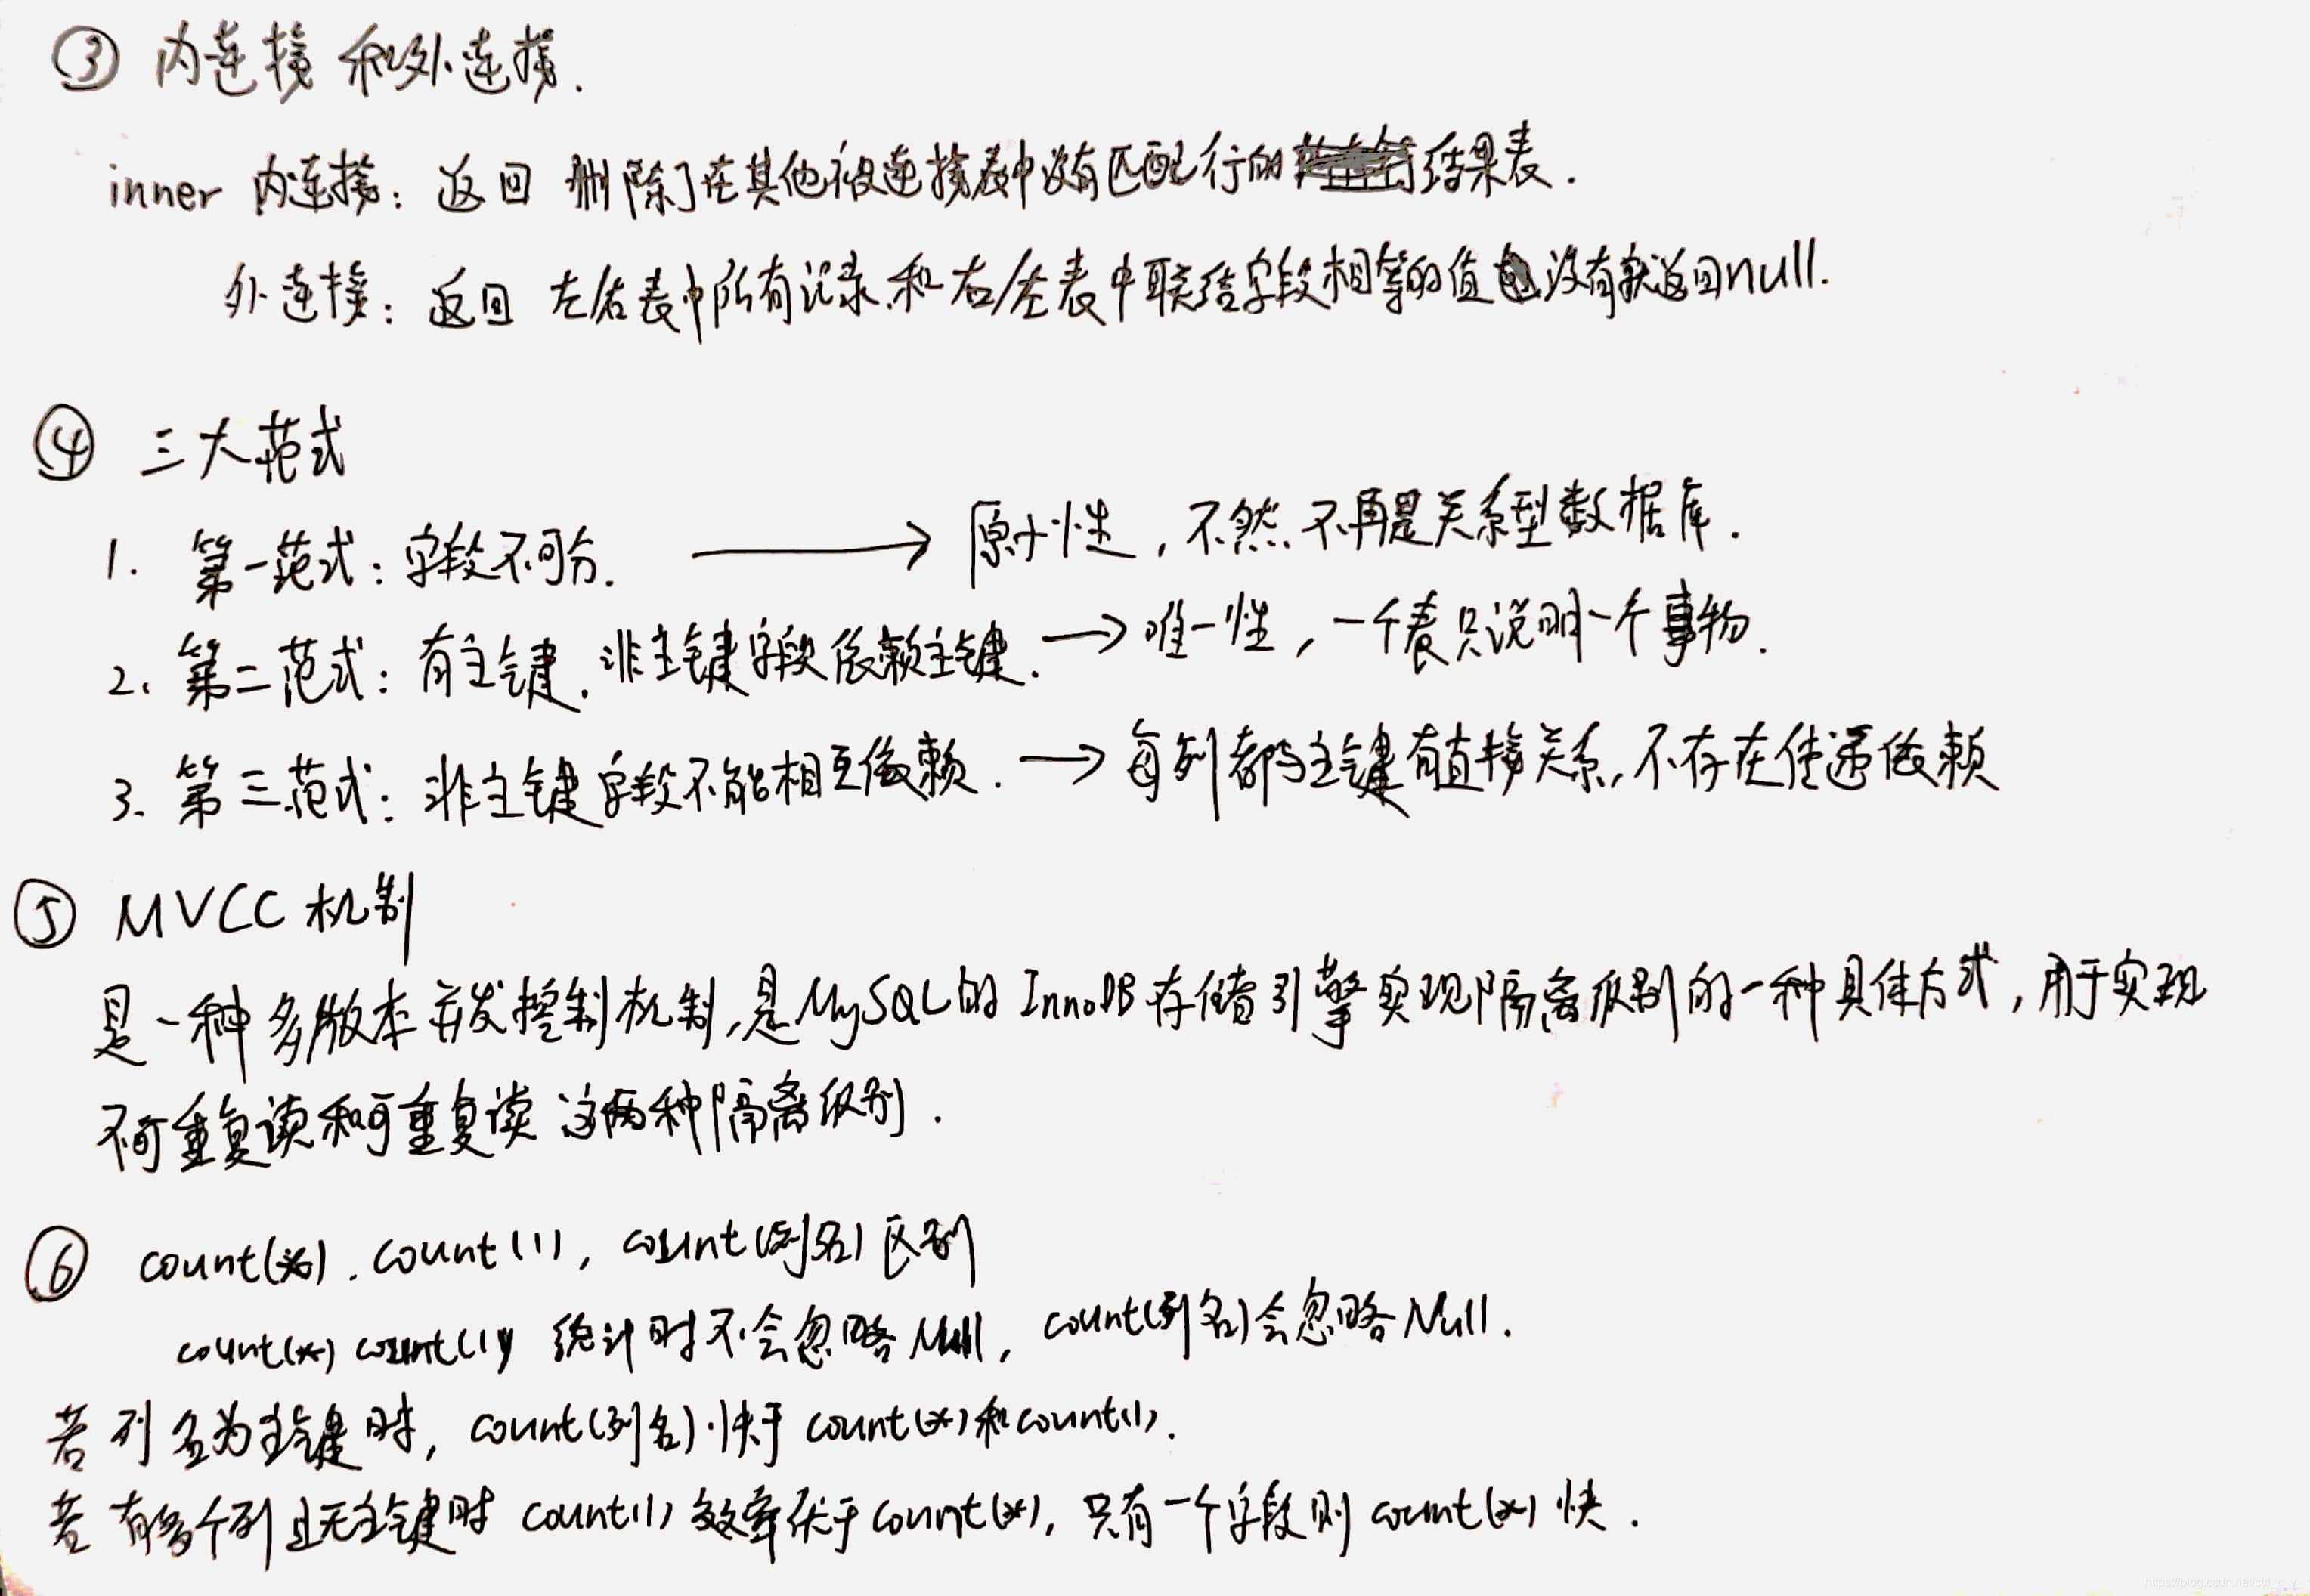 ③ 内连接和外连接.
inner 内连接: 返回 删除了在其他被连接表中没有匹配行的结果表.
外连接: 返回 左/右表中所有记录和右/左表中联结字段相等的值 没有就返回null.
④ 三大范式
1. 第一范式: 字段不可分. → 原子性, 不然不再是关系型数据库.
2. 第二范式: 有主键, 非主键字段依赖主键. → 唯一性, 一个表只说明一个事物.
3. 第三范式: 非主键字段不能相互依赖. → 每列都与主键有直接关系, 不存在传递依赖
⑤ MVCC 机制
是一种多版本并发控制机制,是MySQL的InnoDB存储引擎实现隔离级别的一种具体方式,用于实现
不可重复读和可重复读 这两种隔离级别.
⑥ count(*). count(1), count(列名) 区别
count(*) count(1) 统计时不会忽略Null, count(列名)会忽略Null.
若列名为主键时, count(列名)快于 count(*)和count(1).
若有多个列且无主键时 count(1) 效率优于count(*), 只有一个字段则 count(*) 快.